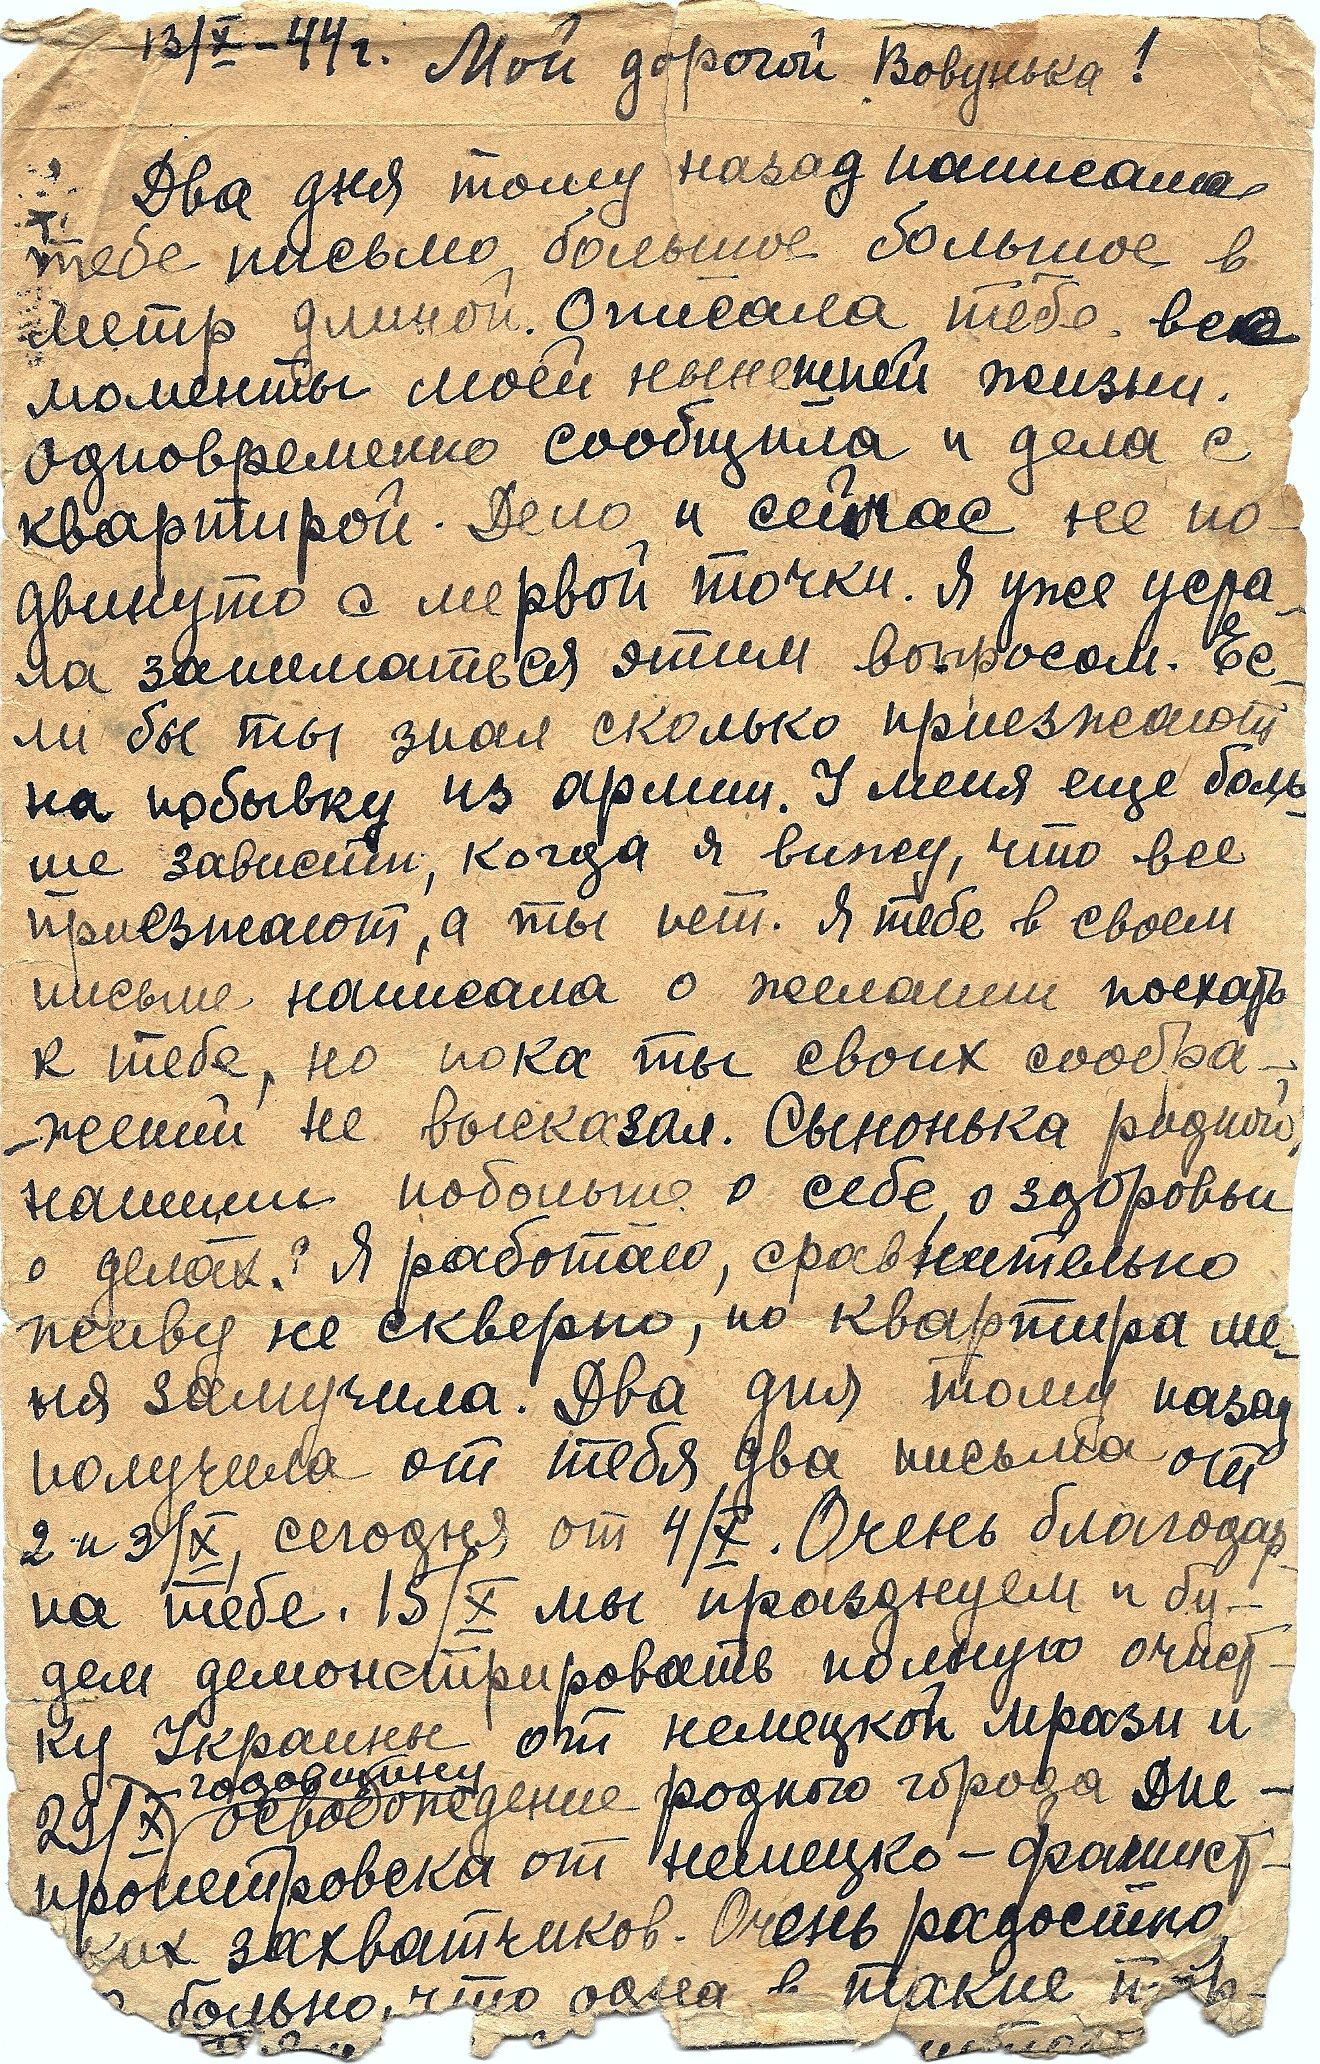 13/X-44г. Мой дорогой Вовунька!
Два дня тому назад написала
тебе письмо большое большое в
метр длиной. Описала тебе все
моменты моей нынешней жизни.
Одновременно сообщила и дела с
квартирой. Дело и сейчас не по-
двинуто с мервой точки. Я уже уста-
ла заниматься этим вопросом. Ес-
ли бы ты знал сколько приезжают
на побывку из армии. У меня еще боль-
ше зависти, когда я вижу, что все
приезжают, а ты нет. Я тебе в своем
письме написала о желании поехать
к тебе, но пока ты своих сообра-
-жений не высказал. Сынонька родной,
напиши побольше о себе, о здоровьи
о делах? Я работаю, сравнительно
живу не скверно, но квартира ме-
ня замучила. Два дня тому назад
получила от тебя два письма от
2 и 3/X, сегодня от 4/X. Очень благодар-
на тебе. 15/X мы празднуем и бу-
дем демонстрировать полную очист-
ку Украины от немецкой мрази и
годовщину
29/X освобождение родного города Дне-
пропетровска от немецко-фашист-
ких захватчиков. Очень радостно,
больно, что одна в такие